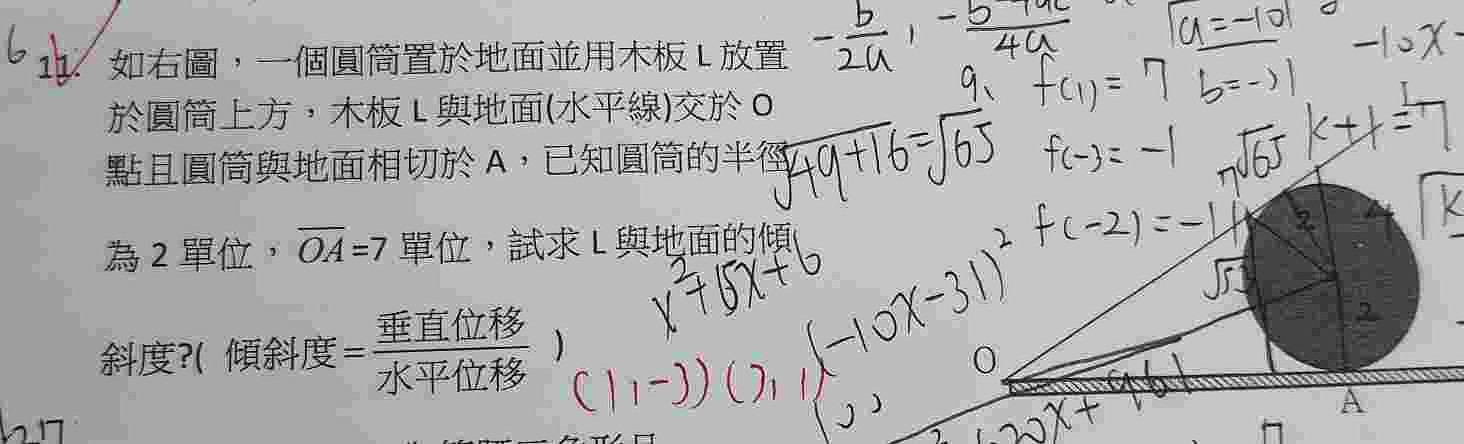 6
11. 如右圖，一個圓筒置於地面並用木板 L 放置
於圓筒上方，木板 L 與地面(水平線)交於 O
點且圓筒與地面相切於 A，已知圓筒的半徑
為 2 單位，OA=7 單位，試求 L 與地面的傾
斜度?( 傾斜度=垂直位移/水平位移 )
-b/2a ,
4a
a=-10
-10x-
f(1)=7
√49+16=√65
f(-3)=-1
√65
k+1=7
f(-2)=-11
2
4
√53
x²+5x+6
(-10x-31)²
2
O
A
(1,-3)(3,1)